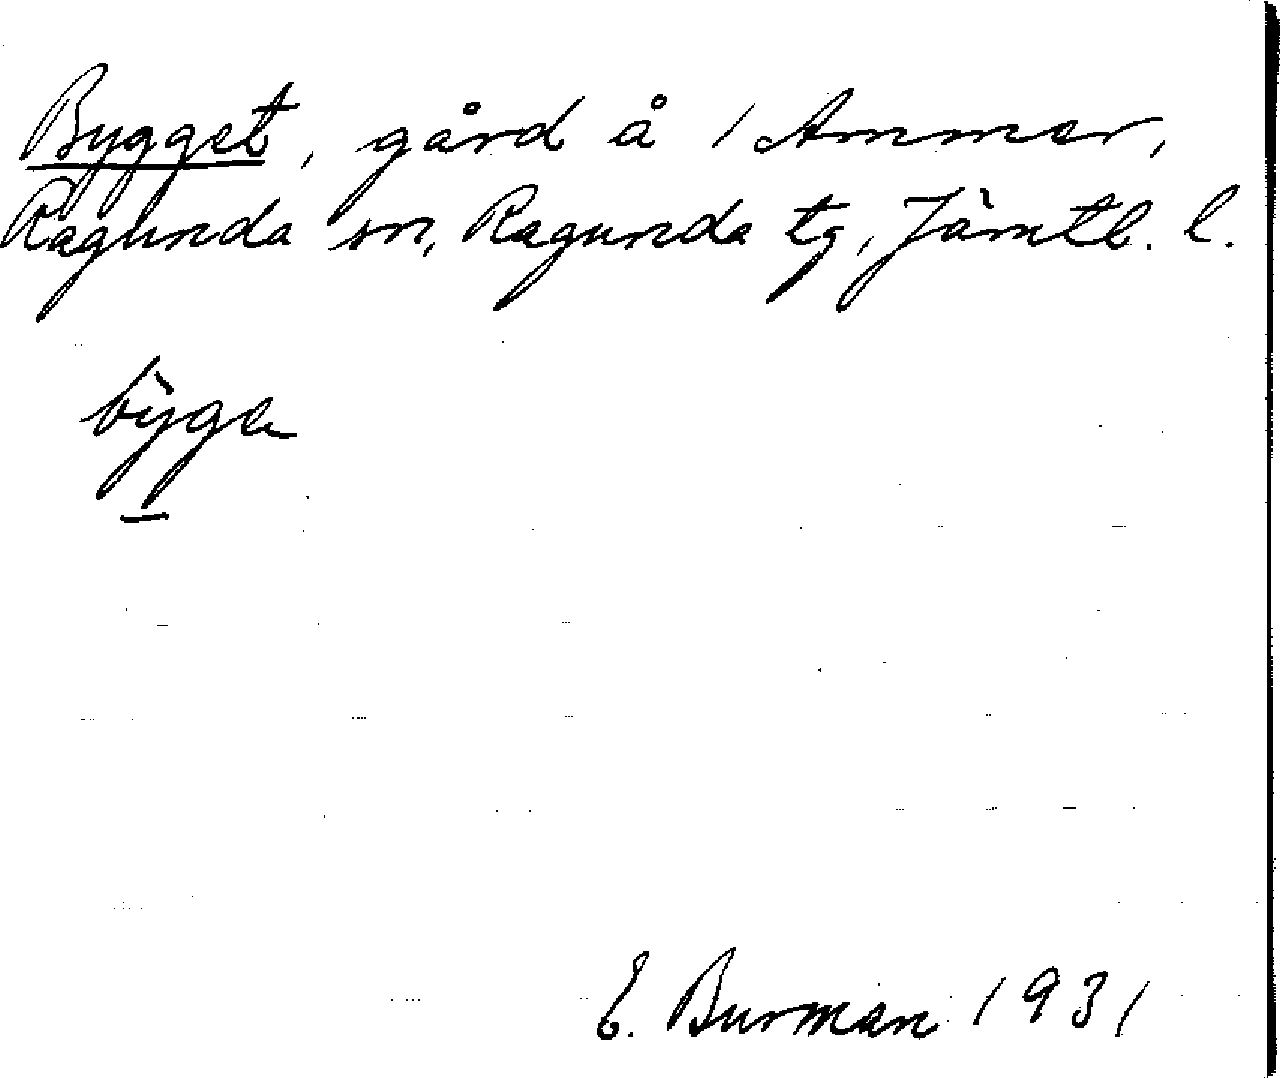 Bygget, gård å 1 Ammer,
Ragunda sn, Ragunda tg, Jämtl. l.
bỳgα
E. Burman 1931